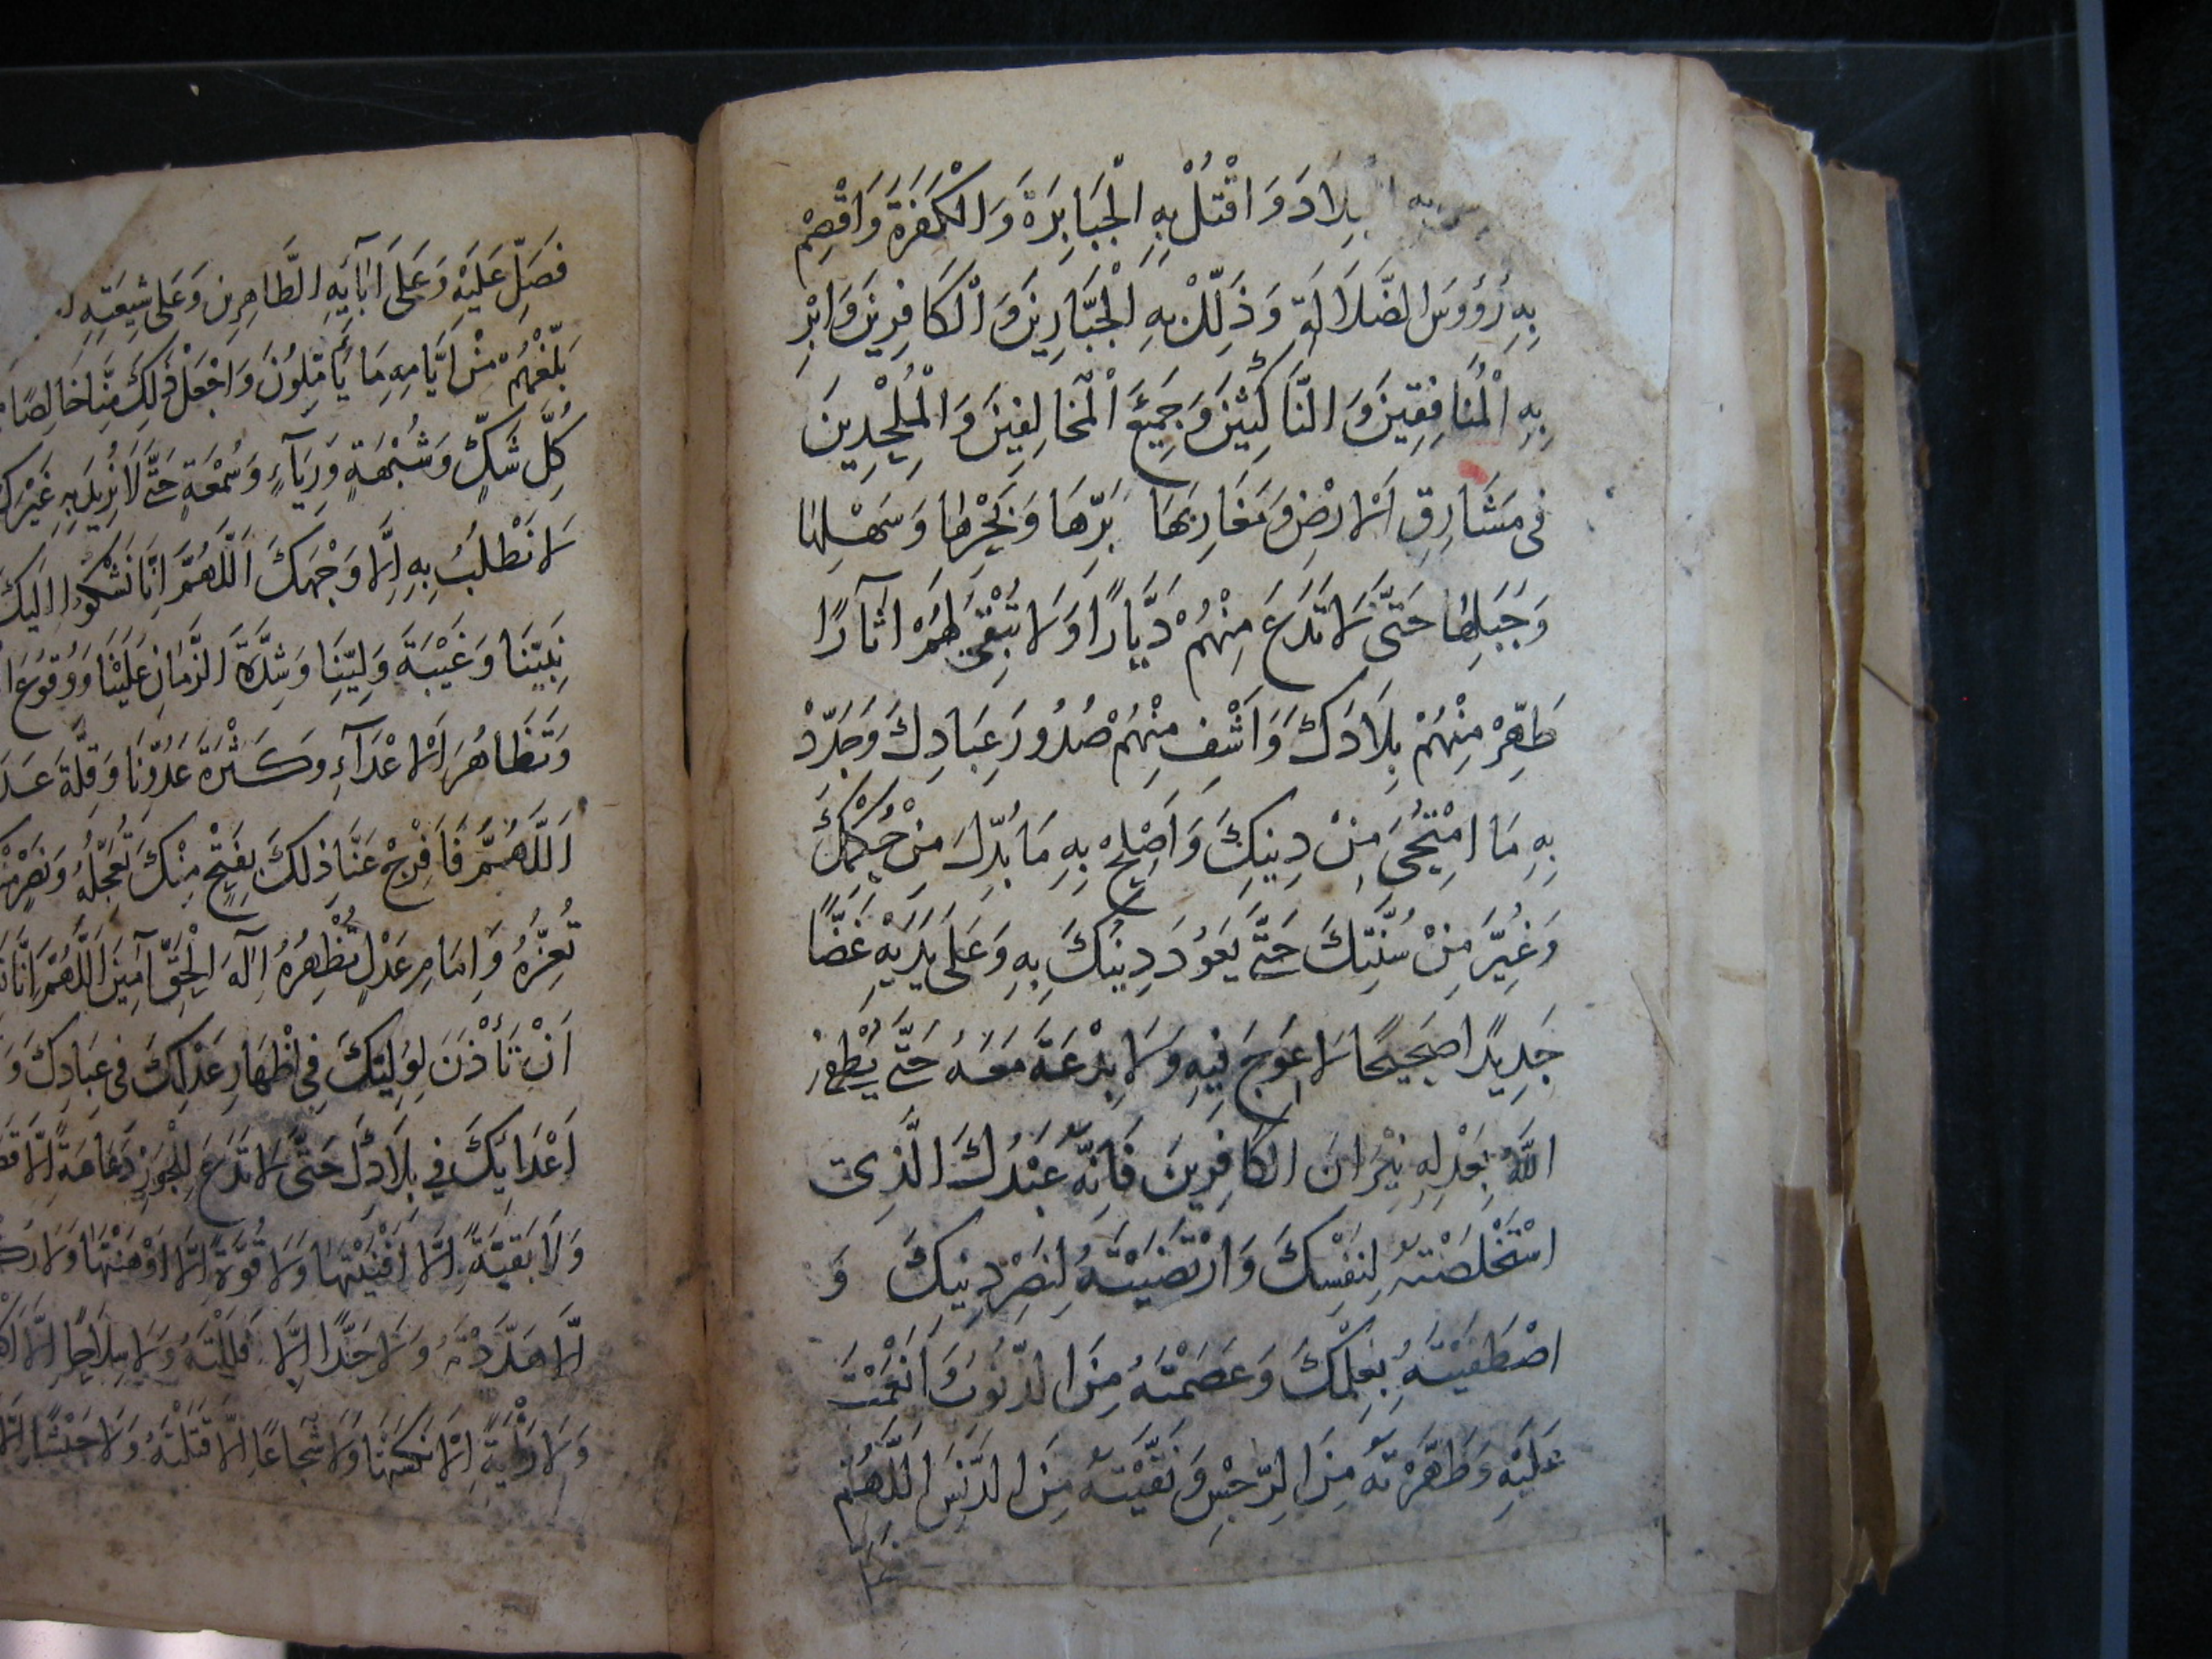 بِلَادَ وَاقْتُلْ بِهِ الْجَبَابِرَةَ وَالْكَفَرَةَ وَاقْصِمْ
بِهِ رُؤُوسَ الضَّلَالَةِ وَذَلِّلْ بِهِ الْجَبَّارِينَ وَالْكَافِرِينَ وَابْرِ
بِهِ الْمُنَافِقِينَ وَالنَّاكِثِينَ وَجَمِيعَ الْمُخَالِفِينَ وَالْمُلْحِدِينَ
فِي مَشَارِقِ الْاَرْضِ وَمَغَارِبِهَا بَرِّهَا وَبَحْرِهَا وَسَهْلِهَا
وَجَبَلِهَا حَتَّى لَا تَدَعَ مِنْهُمْ دَيَّارًا وَلَا تُبْقِيَ لَهُمْ اٰثَارًا
طَهِّرْ مِنْهُمْ بِلَادَكَ وَاَشْفِ مِنْهُمْ صُدُورَ عِبَادِكَ وَجَدِّدْ
بِهِ مَا امْتَحٰى مِنْ دِينِكَ وَاَصْلِحْ بِهِ مَا بُدِّلَ مِنْ حُكْمِكَ
وَغُيِّرَ مِنْ سُنَّتِكَ حَتَّى يَعُودَ دِينُكَ بِهِ وَعَلَى يَدَيْهِ غَضًّا
جَدِيدًا صَحِيحًا لَا عِوَجَ فِيهِ وَلَا بِدْعَةَ مَعَهُ حَتَّى يُطْفِئَ
اللهُ بِعَدْلِهِ نِيْرَانَ الْكَافِرِينَ فَاِنَّهُ عَبْدُكَ الَّذِي
اسْتَخْلَصْتَهُ لِنَفْسِكَ وَارْتَضَيْتَهُ لِنَصْرِ دِينِكَ وَ
اصْطَفَيْتَهُ بِعِلْمِكَ وَعَصَمْتَهُ مِنَ الذُّنُوبِ وَاَنْعَمْتَ
عَلَيْهِ وَطَهَّرْتَهُ مِنَ الرِّجْسِ وَنَقَّيْتَهُ مِنَ الدَّنَسِ اَللّٰهُمَّ
فَصَلِّ عَلَيْهِ وَعَلَى اٰبَآئِهِ الطَّاهِرِينَ وَعَلَى شِيعَتِهِ
بَلِّغْهُمْ مِنْ اَيَّامِهِ مَا يَأْمُلُونَ وَاجْعَلْ ذٰلِكَ مِنَّا خَالِصًا
كُلِّ شَكٍّ وَشُبْهَةٍ وَرِيَآءٍ وَسُمْعَةٍ حَتَّى لَا نُرِيدَ بِهِ غَيْرَكَ
لَا نَطْلُبُ بِهِ اِلَّا وَجْهَكَ اَللّٰهُمَّ اِنَّا نَشْكُوا اِلَيْكَ
نَبِيِّنَا وَغَيْبَةَ وَلِيِّنَا وَشِدَّةَ الزَّمَانِ عَلَيْنَا وَوُقُوعَ
وَتَظَاهُرَ الْاَعْدَآءِ وَكَثْرَةَ عَدُوِّنَا وَقِلَّةَ
اَللّٰهُمَّ فَافْرِجْ عَنَّا ذٰلِكَ بِفَتْحٍ مِنْكَ تُعَجِّلُهُ وَنَصْرٍ
تُعِزُّهُ وَاِمَامِ عَدْلٍ تُظْهِرُهُ اِلٰهَ الْحَقِّ اٰمِينَ اَللّٰهُمَّ اِنَّا
اَنْ تَأْذَنَ لِوَلِيِّكَ فِي اِظْهَارِ عَدْلِكَ فِي عِبَادِكَ
اَعْدَائِكَ فِي بِلَادِكَ حَتَّى لَا تَدَعَ لِلْجَوْرِ دِعَامَةً اِلَّا
وَلَا بَقِيَّةً اِلَّا اَفْنَيْتَهَا وَلَا قُوَّةً اِلَّا اَوْهَنْتَهَا وَلَا
اِلَّا هَدَّدْتَهُ وَلَا حَدًّا اِلَّا فَلَلْتَهُ وَلَا سِلَاحًا اِلَّا
وَلَا رَايَةً اِلَّا نَكَسْتَهَا وَلَا شُجَاعًا اِلَّا قَتَلْتَهُ وَلَا جَيْشًا